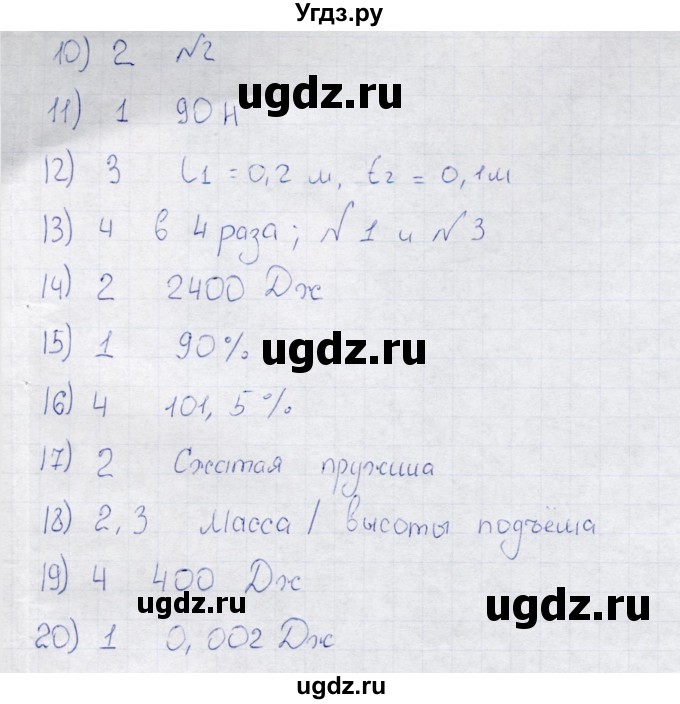 Угдз.ру
10) 2 №2
ugdz.ru
11) 1 90 Н
12) 3 l1 = 0,2 м, l2 = 0,1м
13) 4 в 4 раза; №1 и №3
14) 2 2400 Дж
15) 1 90%
ugdz.ru
16) 4 101,5%
17) 2 Сжатая пружина
18) 2,3 Масса / высоты подъёма
19) 4 400 Дж
ugdz.ru
ugdz.ru
20) 1 0,002 Дж
ugdz.ru